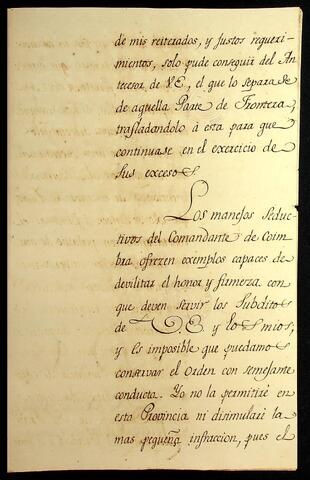 de mis reiterados, y justos requeri-
mientos, solo pude conseguir del An-
tecesor de VE, el que lo separase
de aquella Parte de Frontera,
trasladandolo à esta para que
continuase en el exercicio de
sus excesos
Los manejos seduc-
tivos del Comandante de Coim-
bra ofrezen exemplos capaces de
devilitar el honor y firmeza con
que deven servir los Subditos
de VE y los mios,
y es imposible que puedamos
conservar el Orden con semejante
conducta. Yo no la permitirè en
esta Provincia ni disimularè la
mas pequeña infraccion, pues el